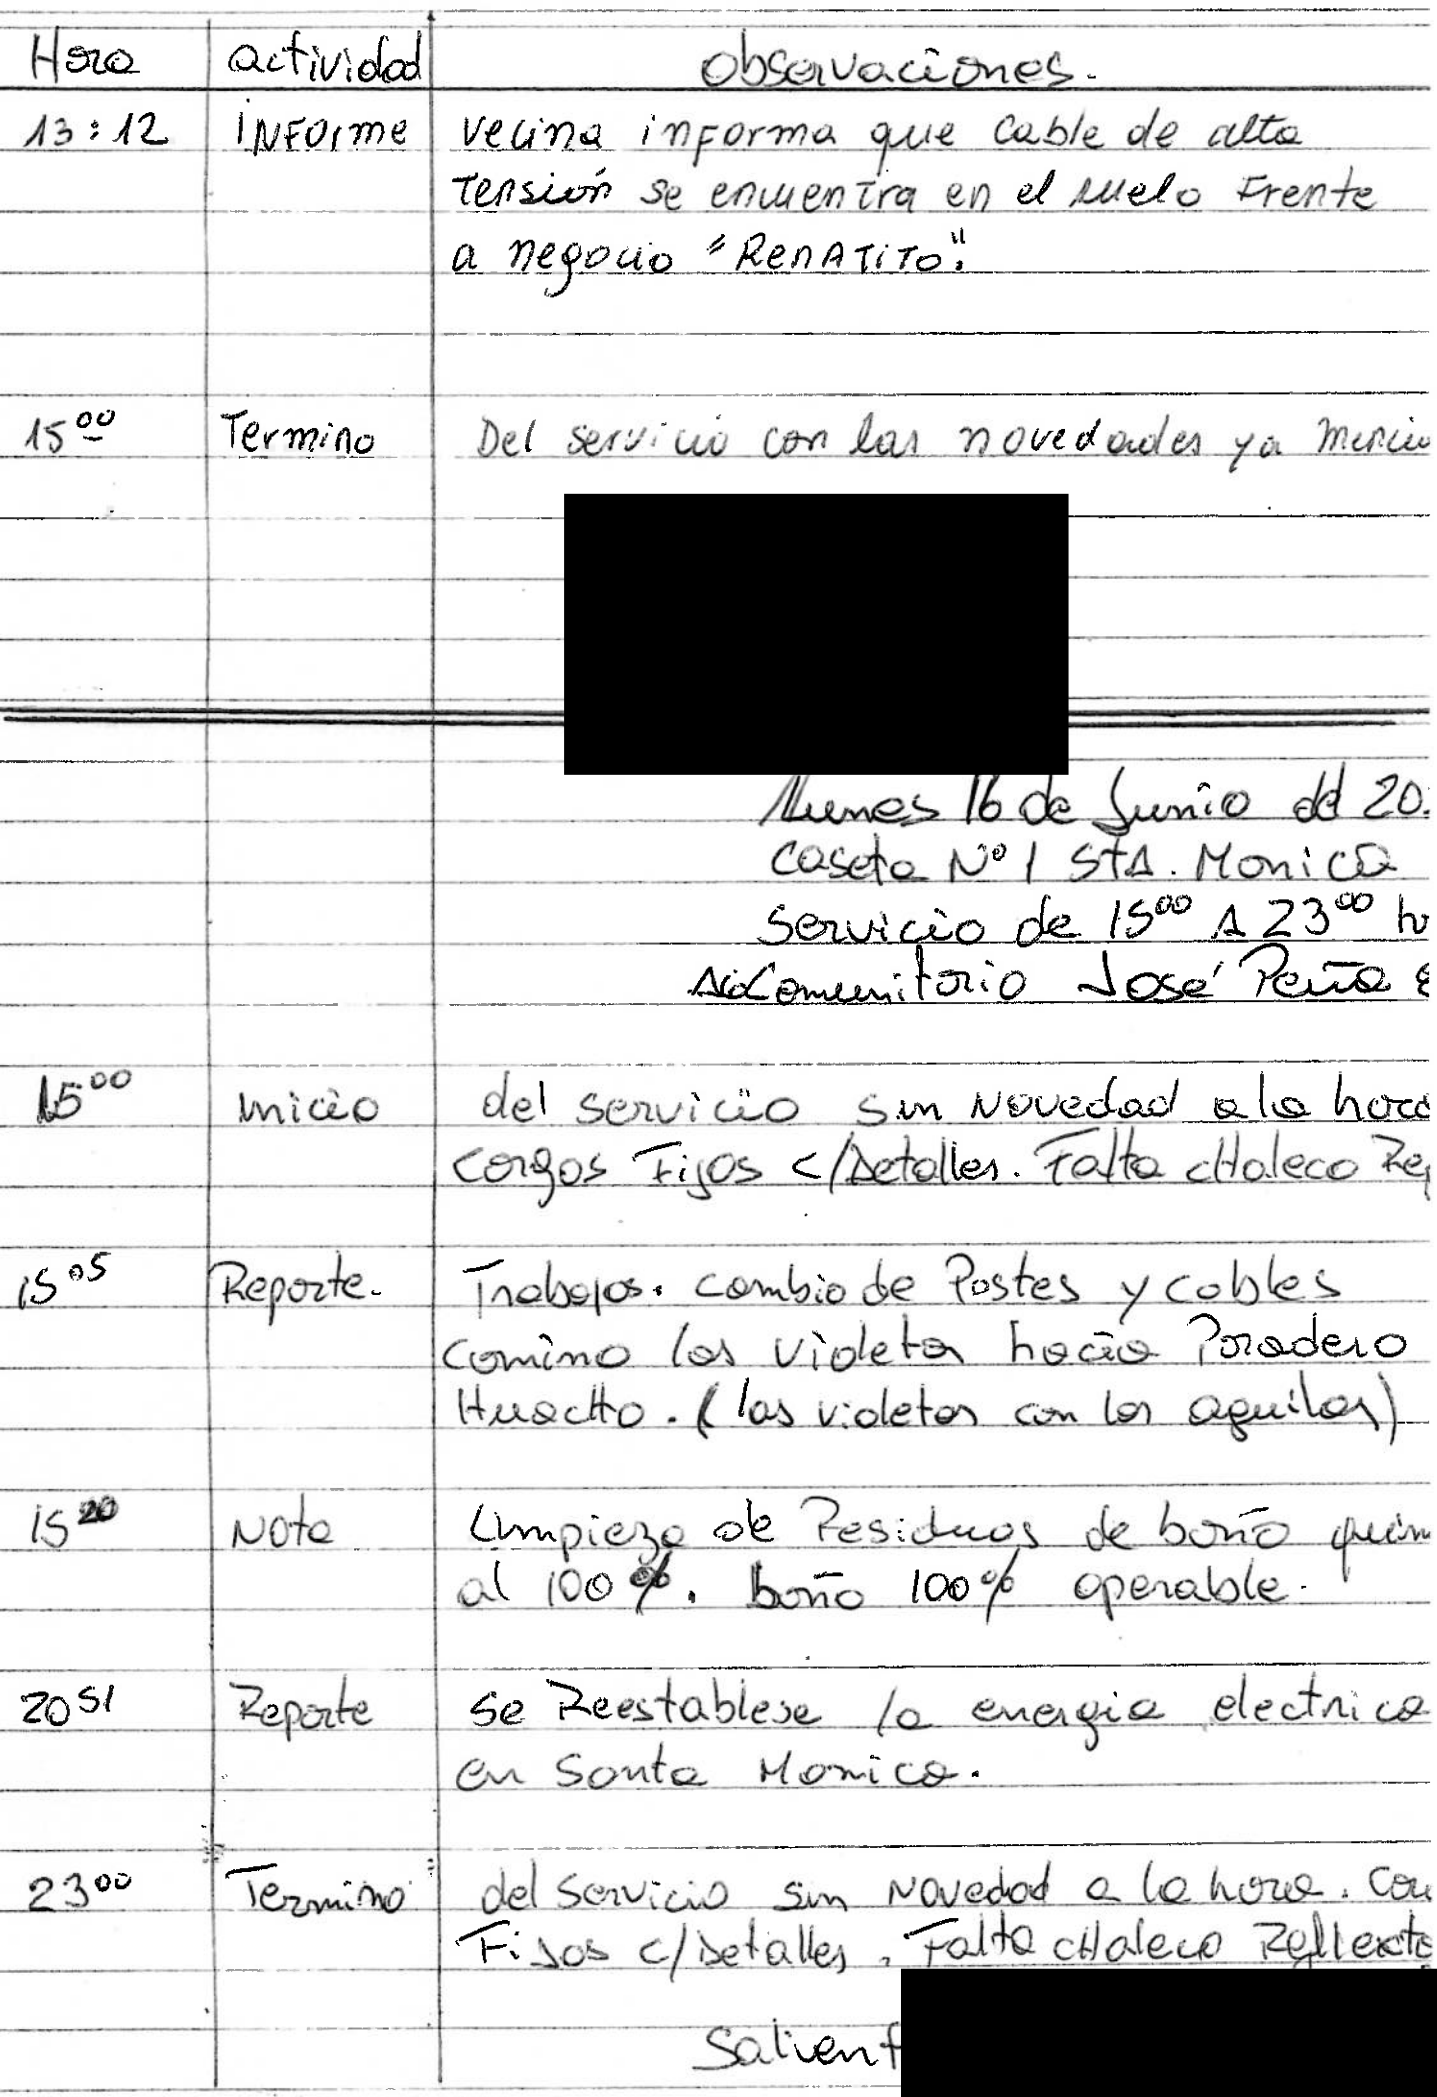 Hora actividad observaciones.
13:12 INForme vecina informa que cable de alta
Tensión se encuentra en el suelo Frente
a negocio "RenATiTo".
15 00 Termino Del servicio con las novedades ya
Lunes 16 de Junio del 20
caseta N° 1 StA. Monica
servicio de 15 00 A 23 00
José Peña
15 00 inicio del servicio sin Novedad a la hora
cargos Fijos c/Detalles. Falta cHaleco
15 05 Reporte. Trabajos. cambio de Postes y cables
camino las violetas hacia Paradero
HuacHo. (las violetas con las aguilas)
15 20 Nota Limpieza de Residuos de baño
al 100%. baño 100% operable.
20 51 Reporte se Reestablese la energia electrica
en Santa Monica.
23 00 Termino del servicio sin Novedad a la hora.
Fijos c/Detalles. Falta cHaleco